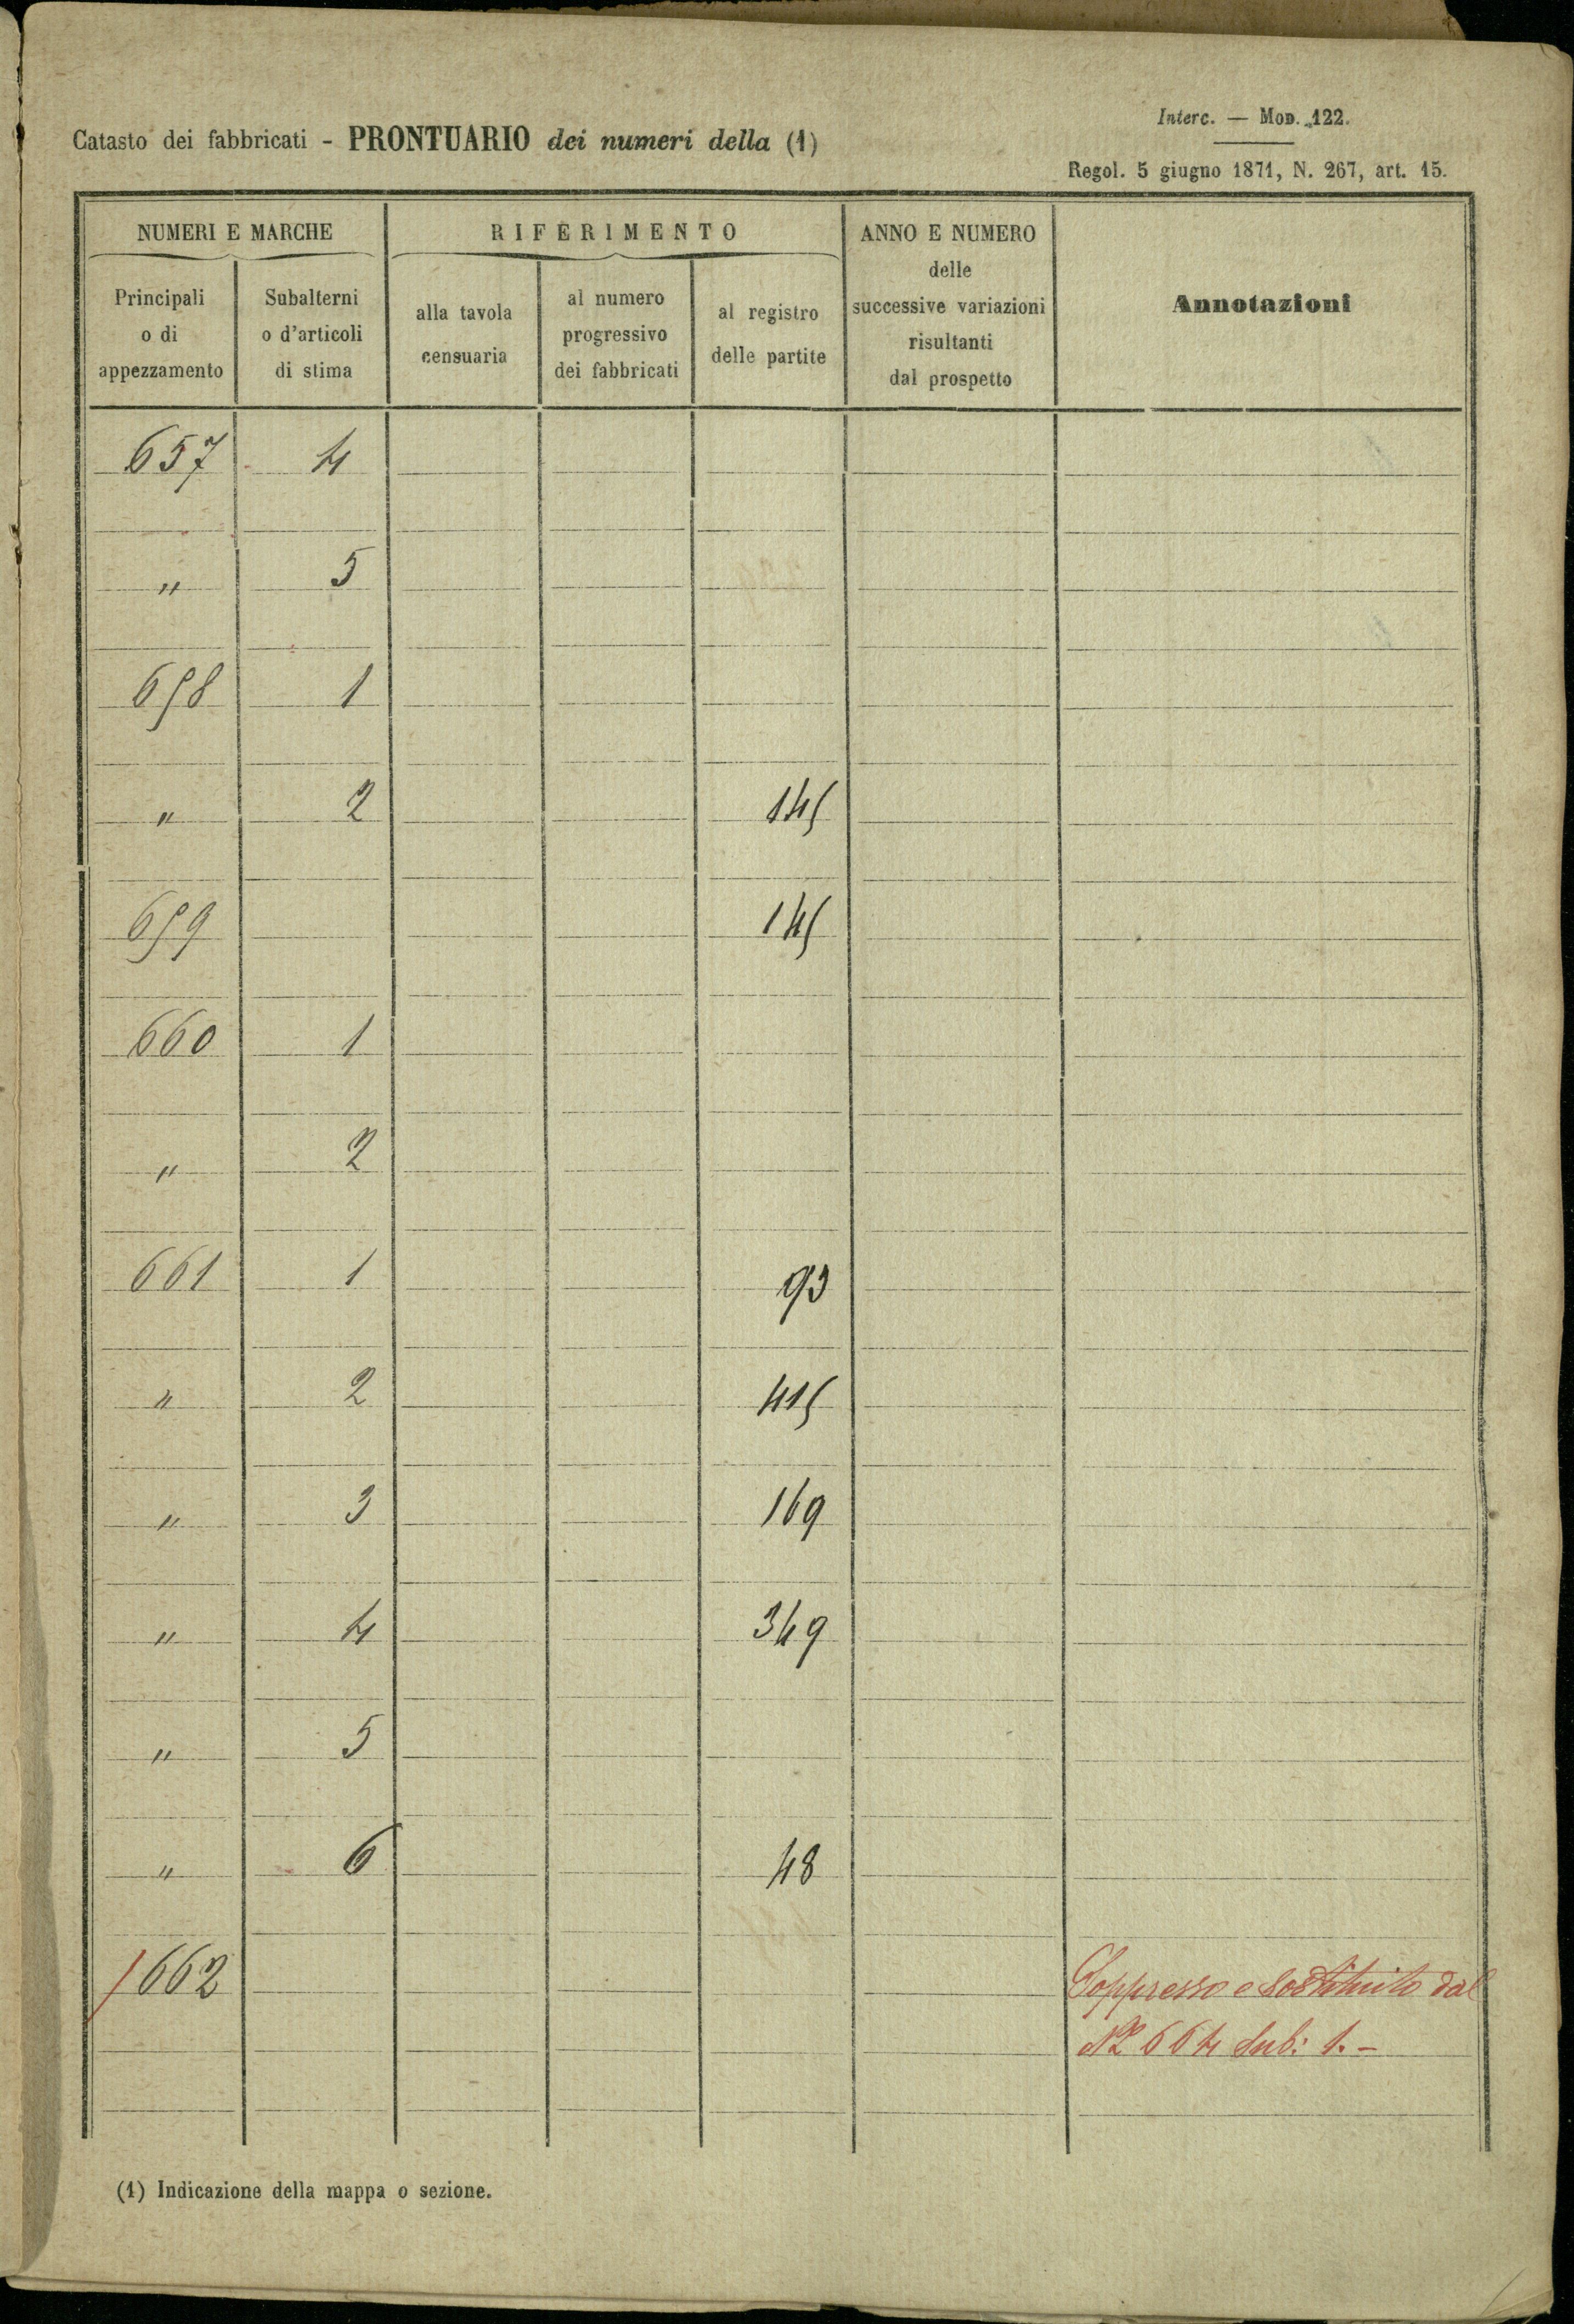 Interc. — MOD. 122.
Catasto dei fabbricati - PRONTUARIO dei numeri della (1)
Regol. 5 giugno 1871, N. 267, art. 15.
NUMERI E MARCHE
RIFERIMENTO
ANNO E NUMERO
delle
successive variazioni
risultanti
dal prospetto
Annotazioni
Principali
o di
appezzamento
Subalterni
o d'articoli
di stima
alla tavola
censuaria
al numero
progressivo
dei fabbricati
al registro
delle partite
657 4
" 5
658 1
" 2 145
659 145
660 1
" 2
661 1 93
" 2 415
" 3 169
" 4 349
" 5
" 6 48
/ 662 Soppresso e sostituito dal
Nº 664 Sub: 1. -
(1) Indicazione della mappa o sezione.